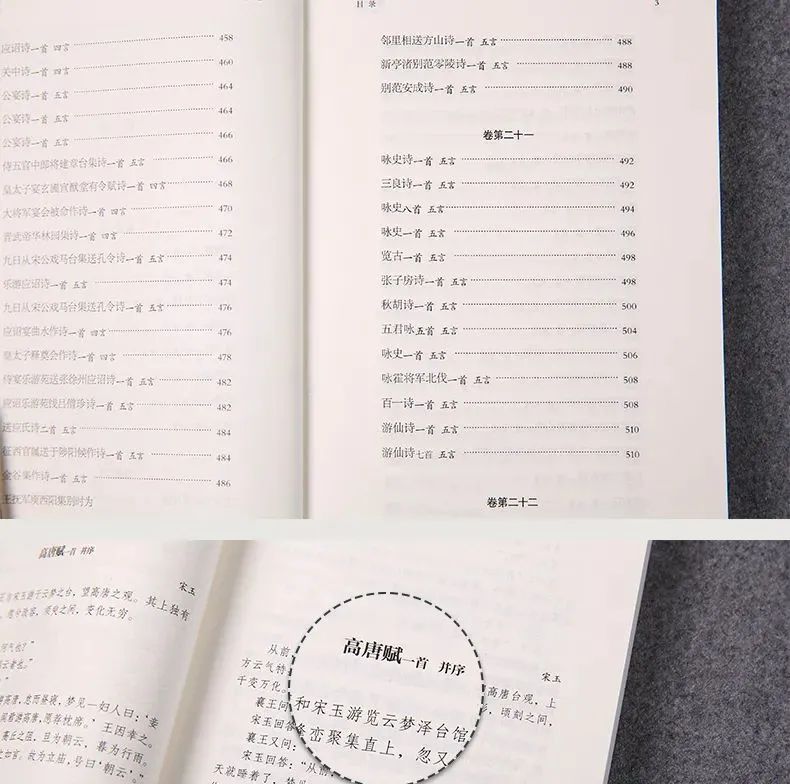 应诏诗一首 四言 458
关中诗一首 四言 460
公宴诗一首 五言 464
公宴诗一首 五言 464
公宴诗一首 五言 466
侍五官中郎将建章台集诗一首 五言 466
皇太子宴玄圃宣猷堂有令赋诗一首 四言 468
大将军宴会被命作诗一首 四言 470
晋武帝华林园集诗一首 四言 472
九日从宋公戏马台集送孔令诗一首 五言 474
乐游应诏诗一首 五言 474
九日从宋公戏马台集送孔令诗一首 五言 476
应诏宴曲水作诗一首 四言 476
皇太子释奠会作诗一首 四言 478
侍宴乐游苑送张徐州应诏诗一首 五言 482
应诏乐游苑饯吕僧珍诗一首 五言 482
送应氏诗二首 五言 484
征西官属送于陟阳候作诗一首 五言 484
金谷集作诗一首 五言 486
王抚军庾西阳集别时为
目录 3
邻里相送方山诗一首 五言 488
新亭渚别范零陵诗一首 五言 488
别范安成诗一首 五言 490
卷第二十一
咏史诗一首 五言 492
三良诗一首 五言 492
咏史八首 五言 494
咏史一首 五言 496
览古一首 五言 498
张子房诗一首 五言 498
秋胡诗一首 五言 500
五君咏五首 五言 504
咏史一首 五言 506
咏霍将军北伐一首 五言 508
百一诗一首 五言 508
游仙诗一首 五言 510
游仙诗七首 五言 510
卷第二十二
高唐赋一首 并序
宋玉
王与宋玉游于云梦之台，望高唐之观。其上独有
须臾之间，变化无穷。
何气也？”
云者也。”
高唐，怠而昼寝，梦见一妇人曰：‘妾
闻君游高唐，愿荐枕席。’王因幸之。
高丘之阻，旦为朝云，暮为行雨。
之如言。故为立庙，号曰‘朝云’。”
高唐赋一首 并序
宋玉
从前，
高唐台观，上
方云气特
顷刻之间，
千变万化。
和宋玉游览云梦泽台馆
襄王问
宋玉回答
峦聚集直上，忽又
襄王又问：
宋玉回答：“从前，
天就睡着了，梦见